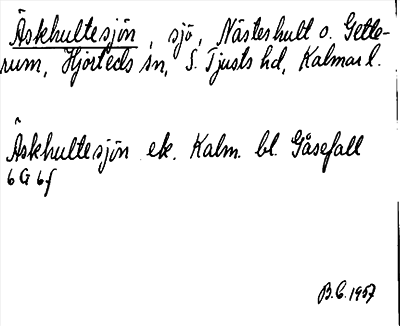 Äskhultesjön, sjö, Nästerhult o. Gette-
rum, Hjorteds sn, S. Tjusts hd, Kalmar l.
Äskhultesjön ek. Kalm. bl. Gåsefall
6 G 6f
B.C. 1957